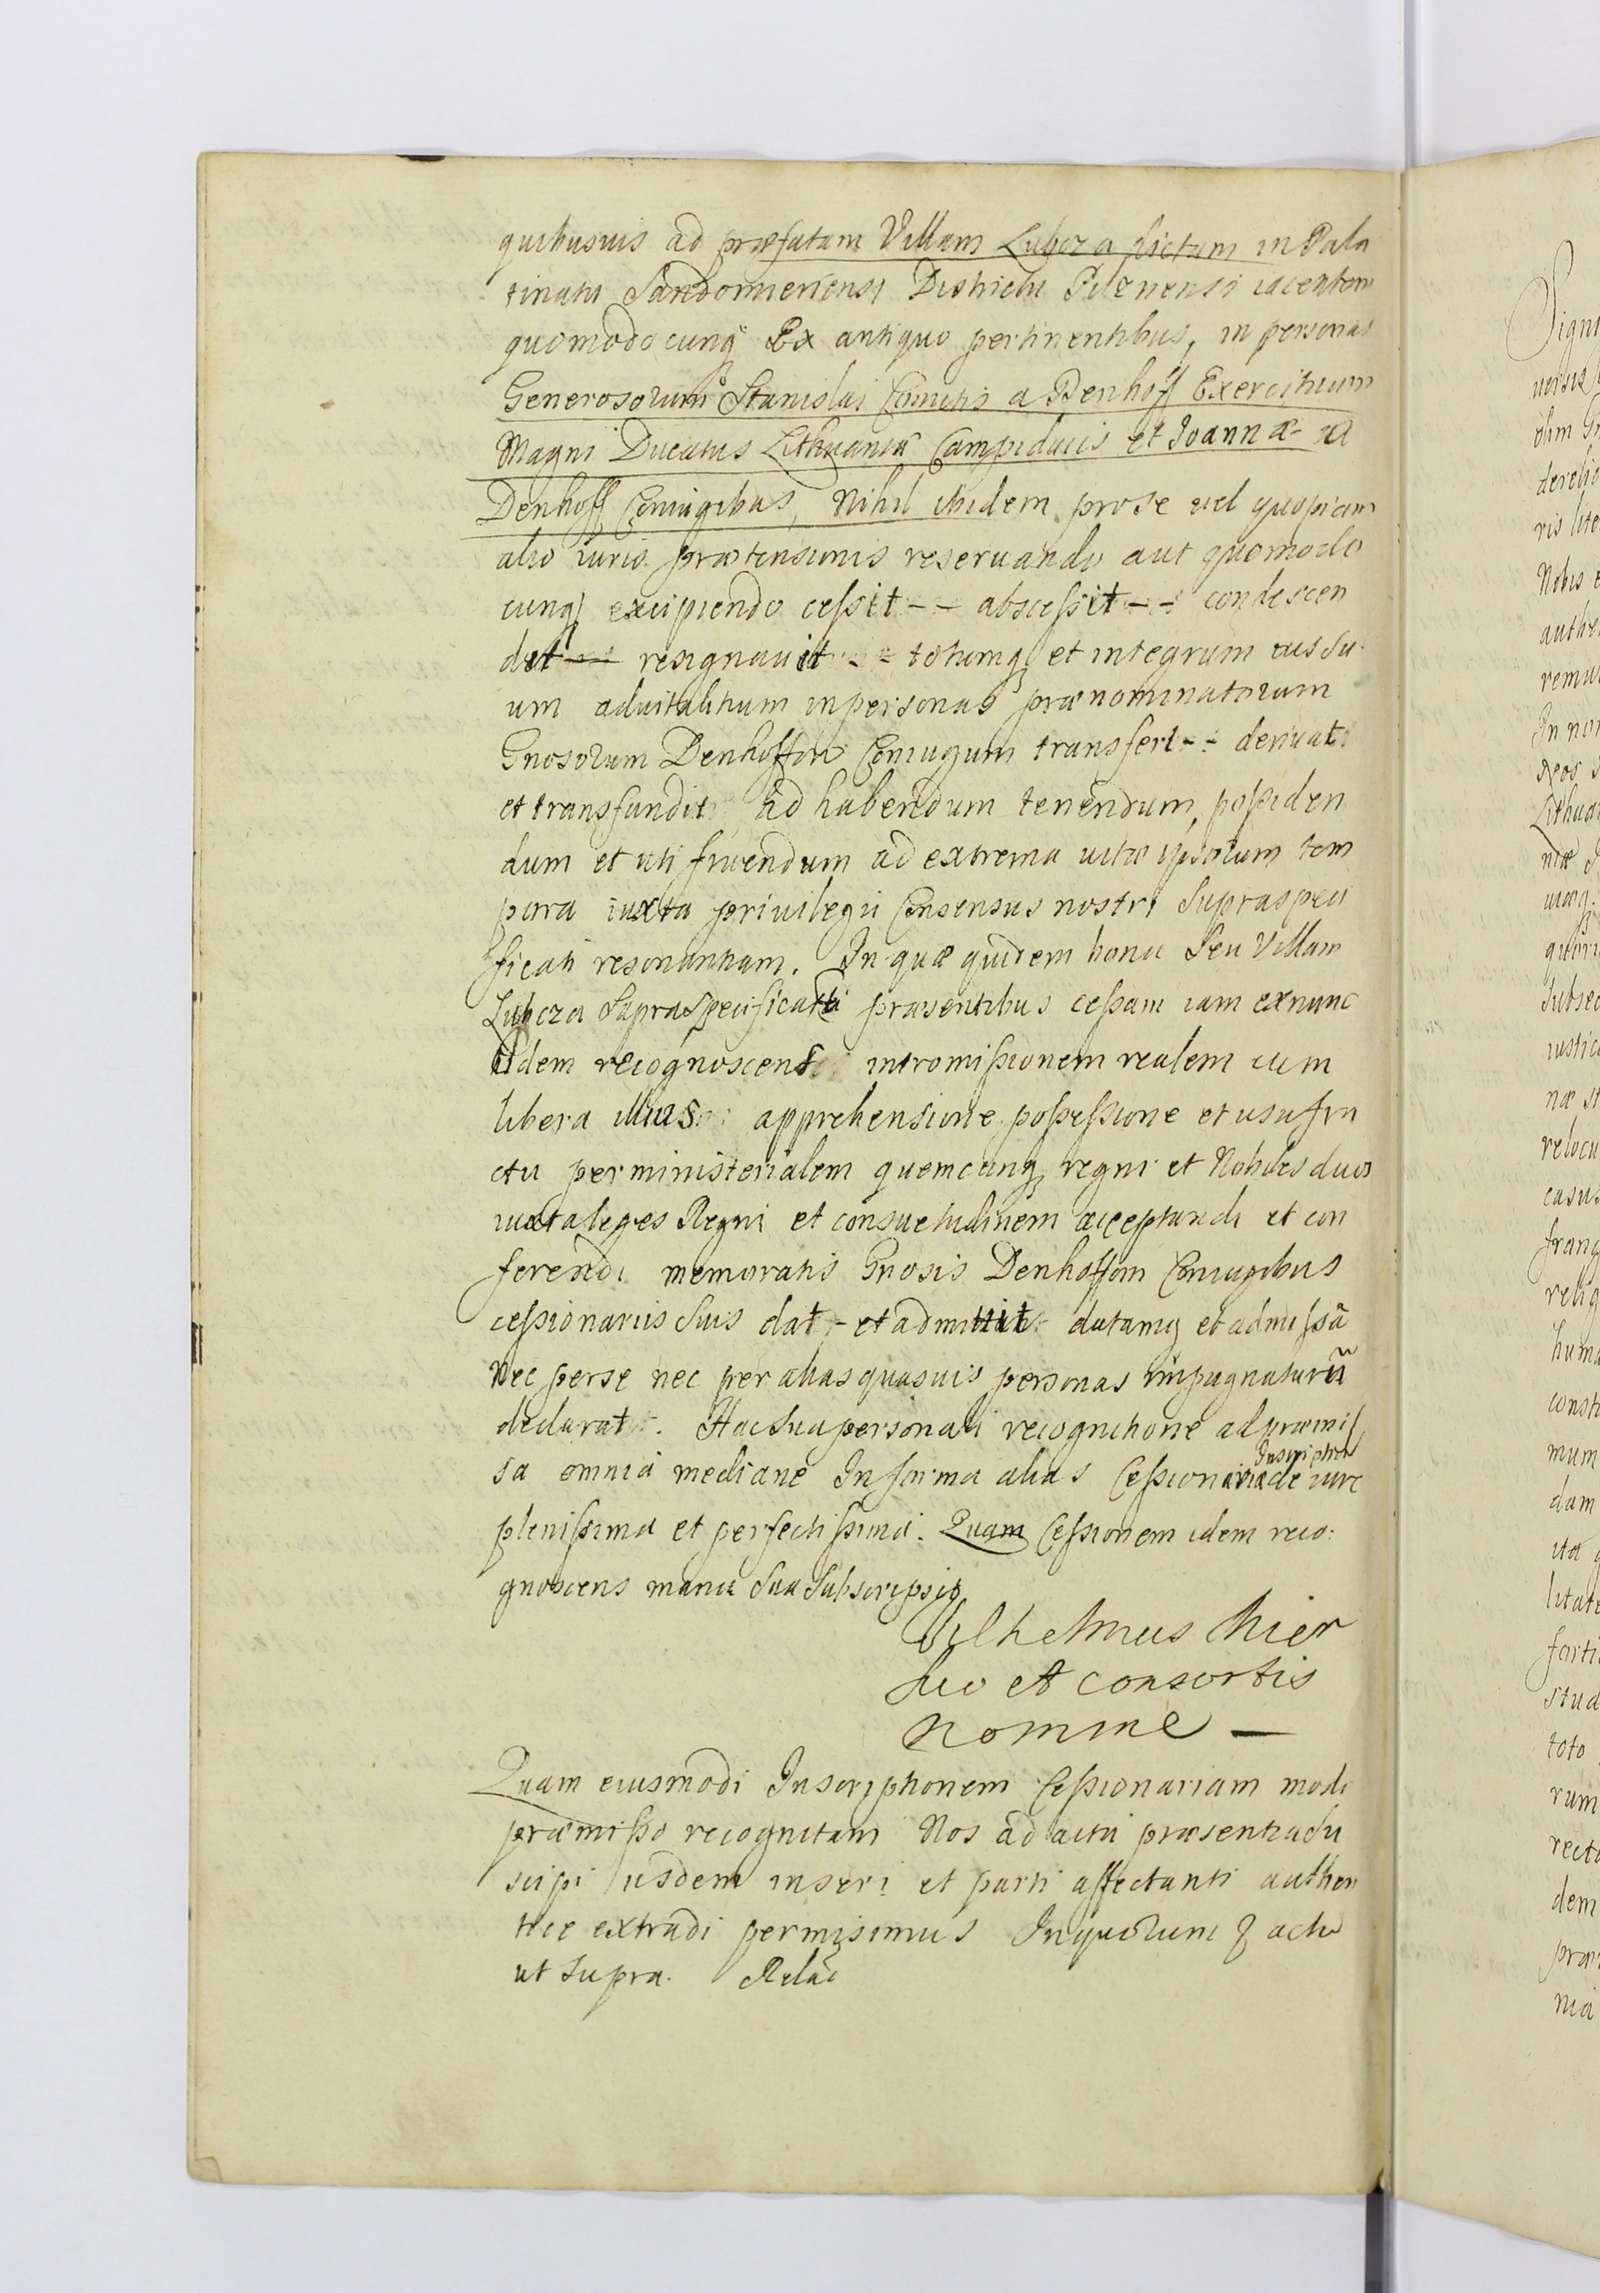 quibusuis ad præfatam Villam Lubcza dictam in Pala
tinatu Sandomiriensi Districtu Pilznensi iacentem
quomodocunq Ex antiquo pertinentibus, in personas
Generosorum Stanislai Comitis a Denhoff Exercituum
Magni Ducatus Lithuaniæ Campiducis et Joannæ - a
Denhoff Coniugibus, Nihil ibidem prose vel quopiam
alio iuris prætensionis reseruando aut quomodo
cunq excipiendo cessit - - abscessit - - condescen
dit - - resignauit - - totumq et integrum ius su
um aduitalitium in personas prænominatorum
Gnosorum Denhoffon Coniugum transfert - - deriuat
et transfundit ad habendum tenendum, possiden
dum et uti fruendum ad extrema vitæ ipsorum tem
pora iuxta priuilegii Consensus nostri supraspeci
ficati resonantiam. In quæ quidem bona seu Villam
Lubcza supraspecificata præsentibus cessam iam exnunc
idem recognoscens intromissionem realem cum
libera illius apprehensione possessione et usufru
ctu per ministerialem quemcunq regni et Nobiles duos
iuxta leges Regni et consuetudinem acceptandi et con
ferendi memoratis Gnosis Denhoffom Coniugibus
cessionariis suis dat - et admittit datamq et admissã
nec perse nec per alias quasuis personas impugnaturũ
declarat. Hac sua personali recognitione ad præmis
sa omnia mediane In forma alias Cessionariæ de iure
Inscription
plenissima et perfectissima. Quam Cessionem idem reco:
gnoscens manu sua subscripsit
Vilhelmus Mier
suo et consortis
nomine —
Quam eiusmodi Inscriptionem Cessionariam modo
præmisso recognitam Nos ad acta præsentia su
scipi iisdem inseri et parti affectanti authen
tice extradi permisimus In quorum & actu
ut supra. Relãc
Signi